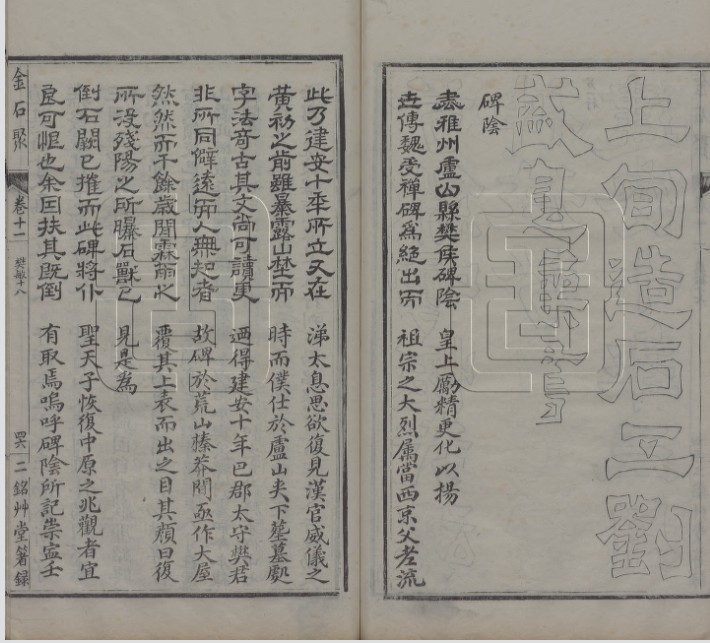 上旬造石工劉
盛息
碑陰
雅州盧山縣樊侯碑陰
世傳魏受禪碑爲絕出而
此乃建安十年所立又在
黃初之前雖暴露山埜而
字法奇古其文尚可讀更
非所同僻遠而人無起者
然然而不餘歲閒霖雨之
所沒殘陽之所曝石獸已
倒石闕已摧而此碑將仆
良可恨也余因扶其既倒
皇上勵精更化以揚
祖宗之大烈屬當西京父老流
涕太息思欲復見漢官威儀之
時而僕仕於盧山夫下墓處
迺得建安十年巴郡太守樊君
故碑於荒山榛莽閒亟作大屋
覆其上表而出之目其顏曰復
見是爲
聖天子恢復中原之兆觀者宜
有取焉嗚呼碑陰所記崇寍壬
金石聚
卷十一
樊敏十八
二銘艸堂箸錄